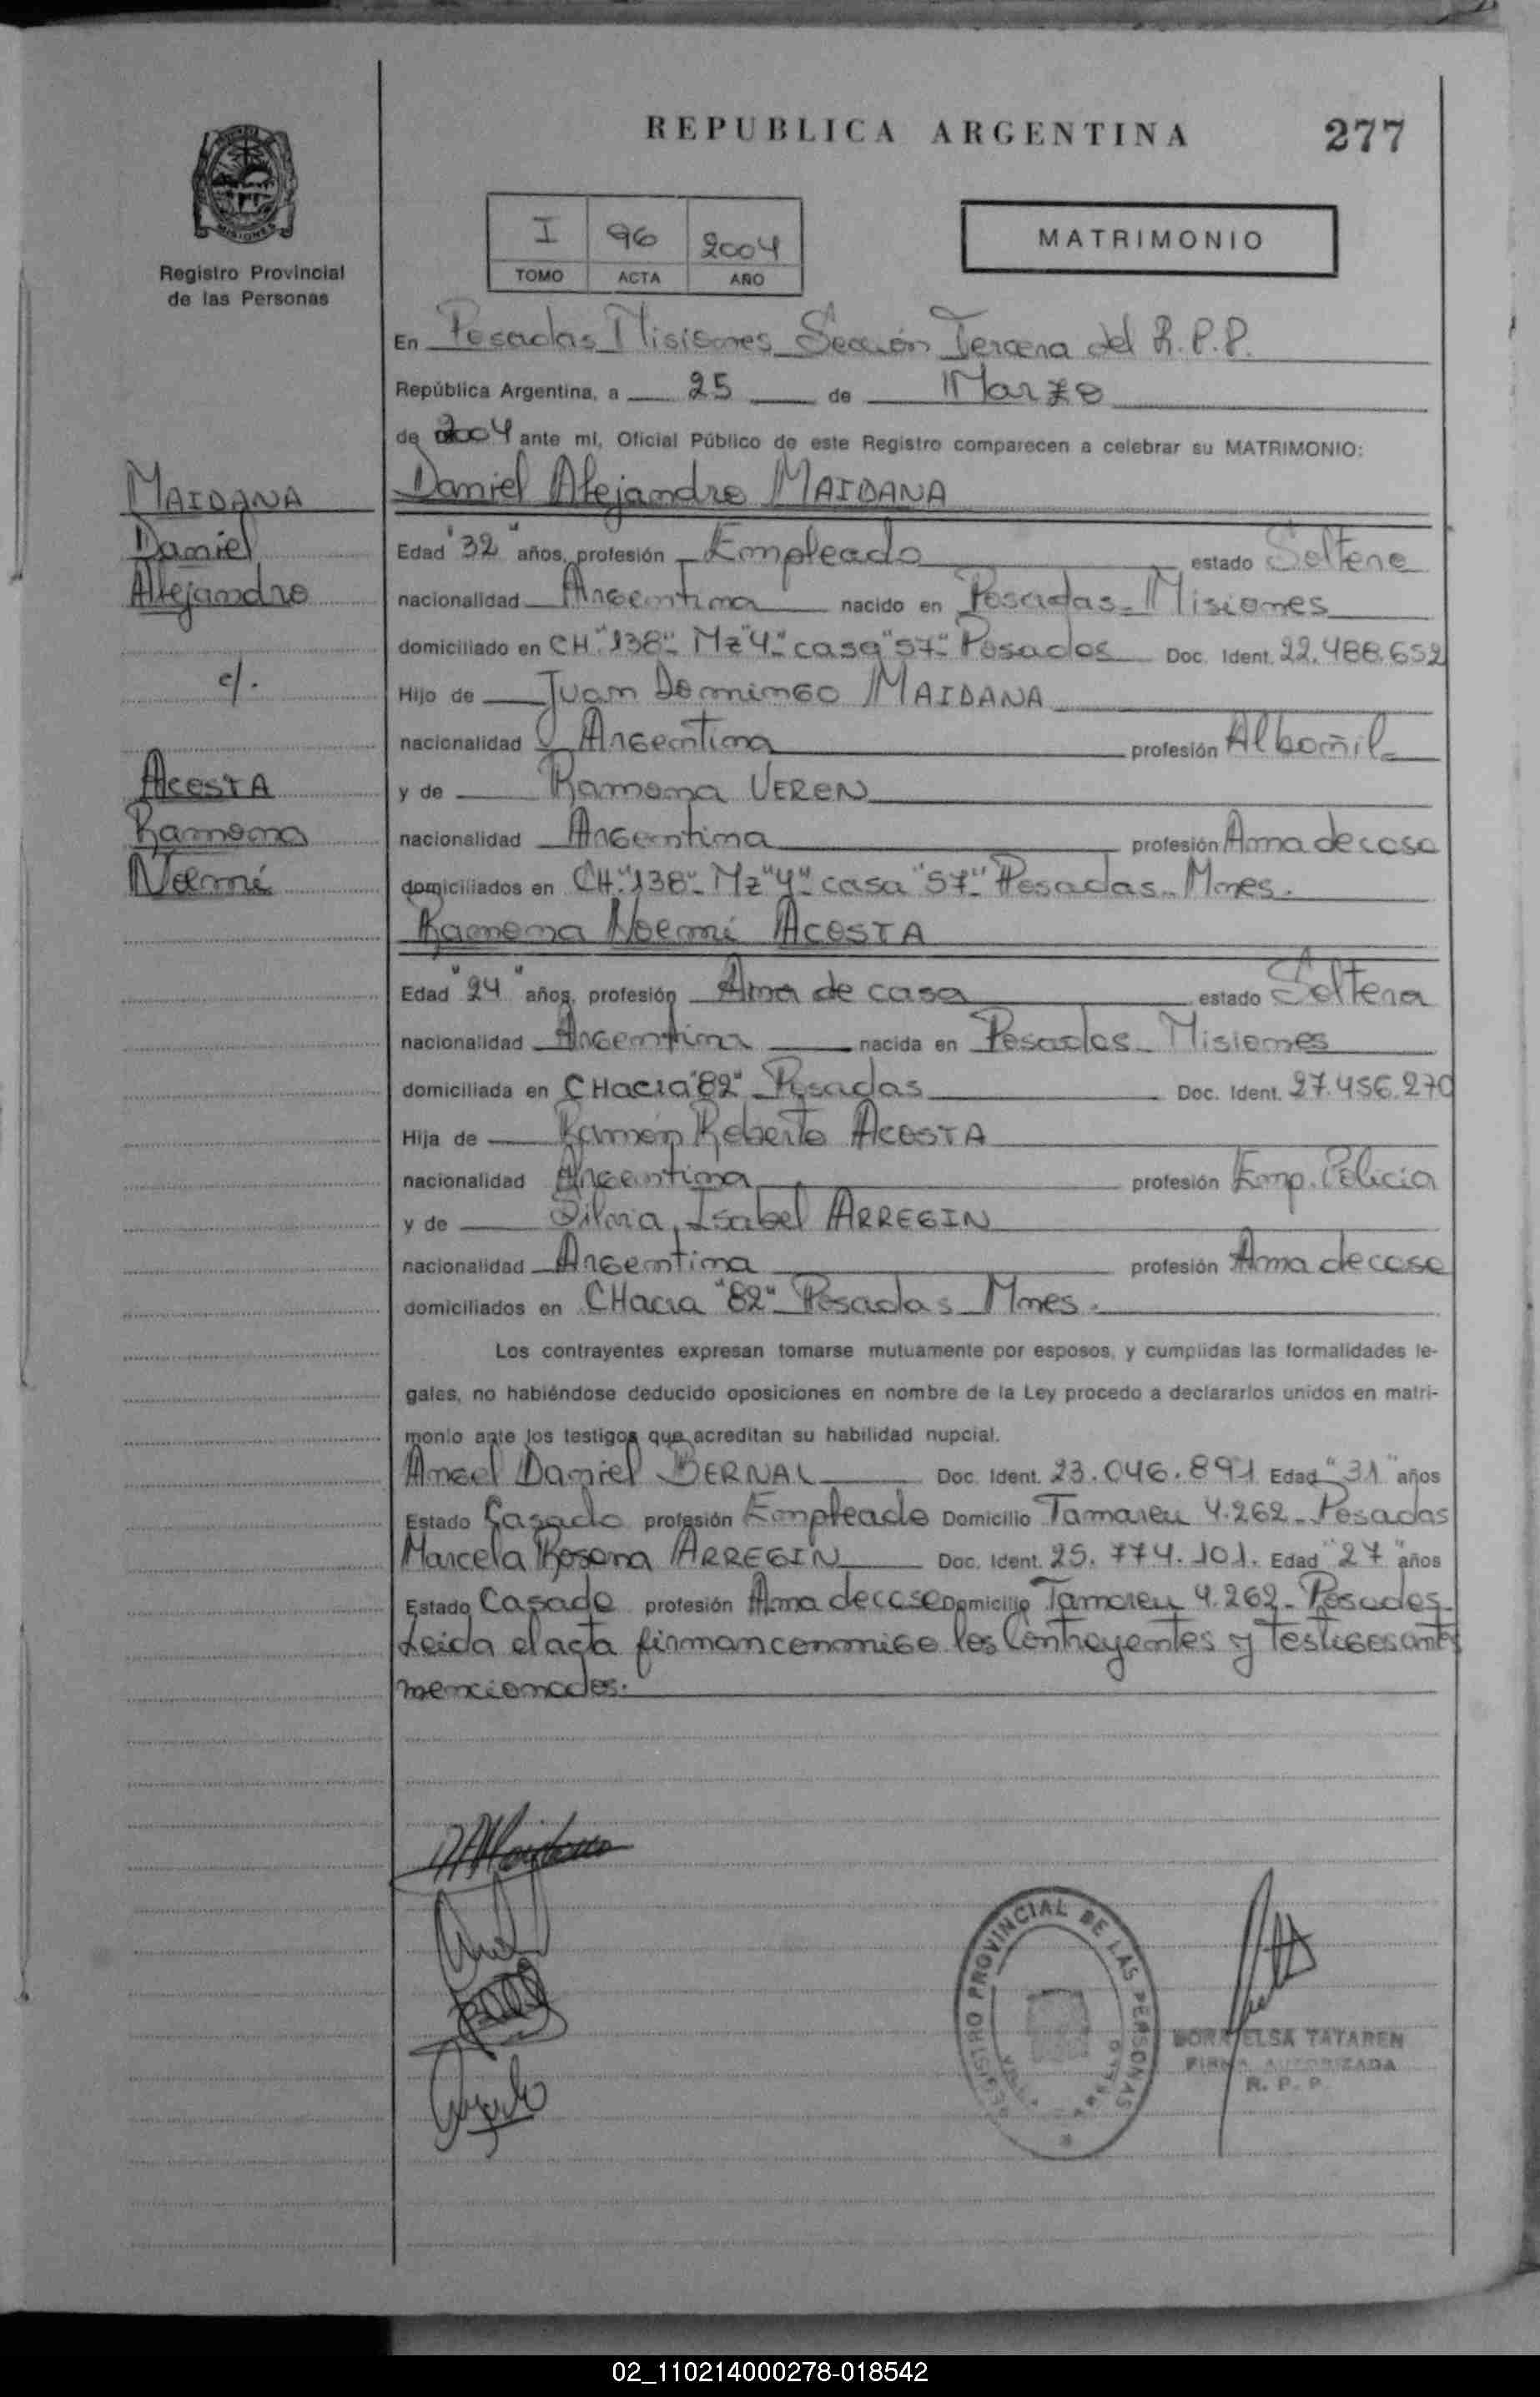 REPUBLICA ARGENTINA
277
MISIONES
Registro Provincial
de las Personas
I 96 2004
TOMO ACTA AÑO
MATRIMONIO
En Posadas Misiones Sección Tercera del R.P.P.
República Argentina, a 25 de Marzo
de 2004 ante mí, Oficial Público de este Registro comparecen a celebrar su MATRIMONIO:
MAIDANA
Daniel
Alejandro
c/.
ACOSTA
Ramona
Noemí
Daniel Alejandro MAIDANA
Edad "32" años, profesión Empleado estado Soltero
nacionalidad Argentina nacido en Posadas - Misiones
domiciliado en CH."138"- Mz"4"- casa"57"- Posadas Doc. Ident. 22.488.652
Hijo de Juan Domingo MAIDANA
nacionalidad Argentina profesión Albañil
y de Ramona VEREN
nacionalidad Argentina profesión Ama de casa
domiciliados en CH."138"- Mz"4"- casa "57"- Posadas - Mnes.
Ramona Noemí ACOSTA
Edad "24" años, profesión Ama de casa estado Soltera
nacionalidad Argentina nacida en Posadas - Misiones
domiciliada en CHacra"82" - Posadas Doc. Ident. 27.456.270
Hija de Ramón Roberto ACOSTA
nacionalidad Argentina profesión Emp. Policia
y de Silvia Isabel ARREGIN
nacionalidad Argentina profesión Ama de casa
domiciliados en CHacra "82" - Posadas - Mnes.
Los contrayentes expresan tomarse mutuamente por esposos, y cumplidas las formalidades le-
gales, no habiéndose deducido oposiciones en nombre de la Ley procedo a declararlos unidos en matri-
monio ante los testigos que acreditan su habilidad nupcial.
Angel Daniel BERNAL Doc. Ident. 23.046.891 Edad "31" años
Estado Casado profesión Empleado Domicilio Tamareu 4.262 - Posadas
Marcela Rosana ARREGIN Doc. Ident. 25.774.101. Edad "27" años
Estado Casado profesión Ama de casa Domicilio Tamareu 4.262 - Posadas.
Leida el acta firman conmigo los Contrayentes y testigos antes
mencionados.
REGISTRO PROVINCIAL DE LAS PERSONAS
ELSA TATAREN
FIRMA AUTORIZADA
R. P. P.
02_110214000278-018542